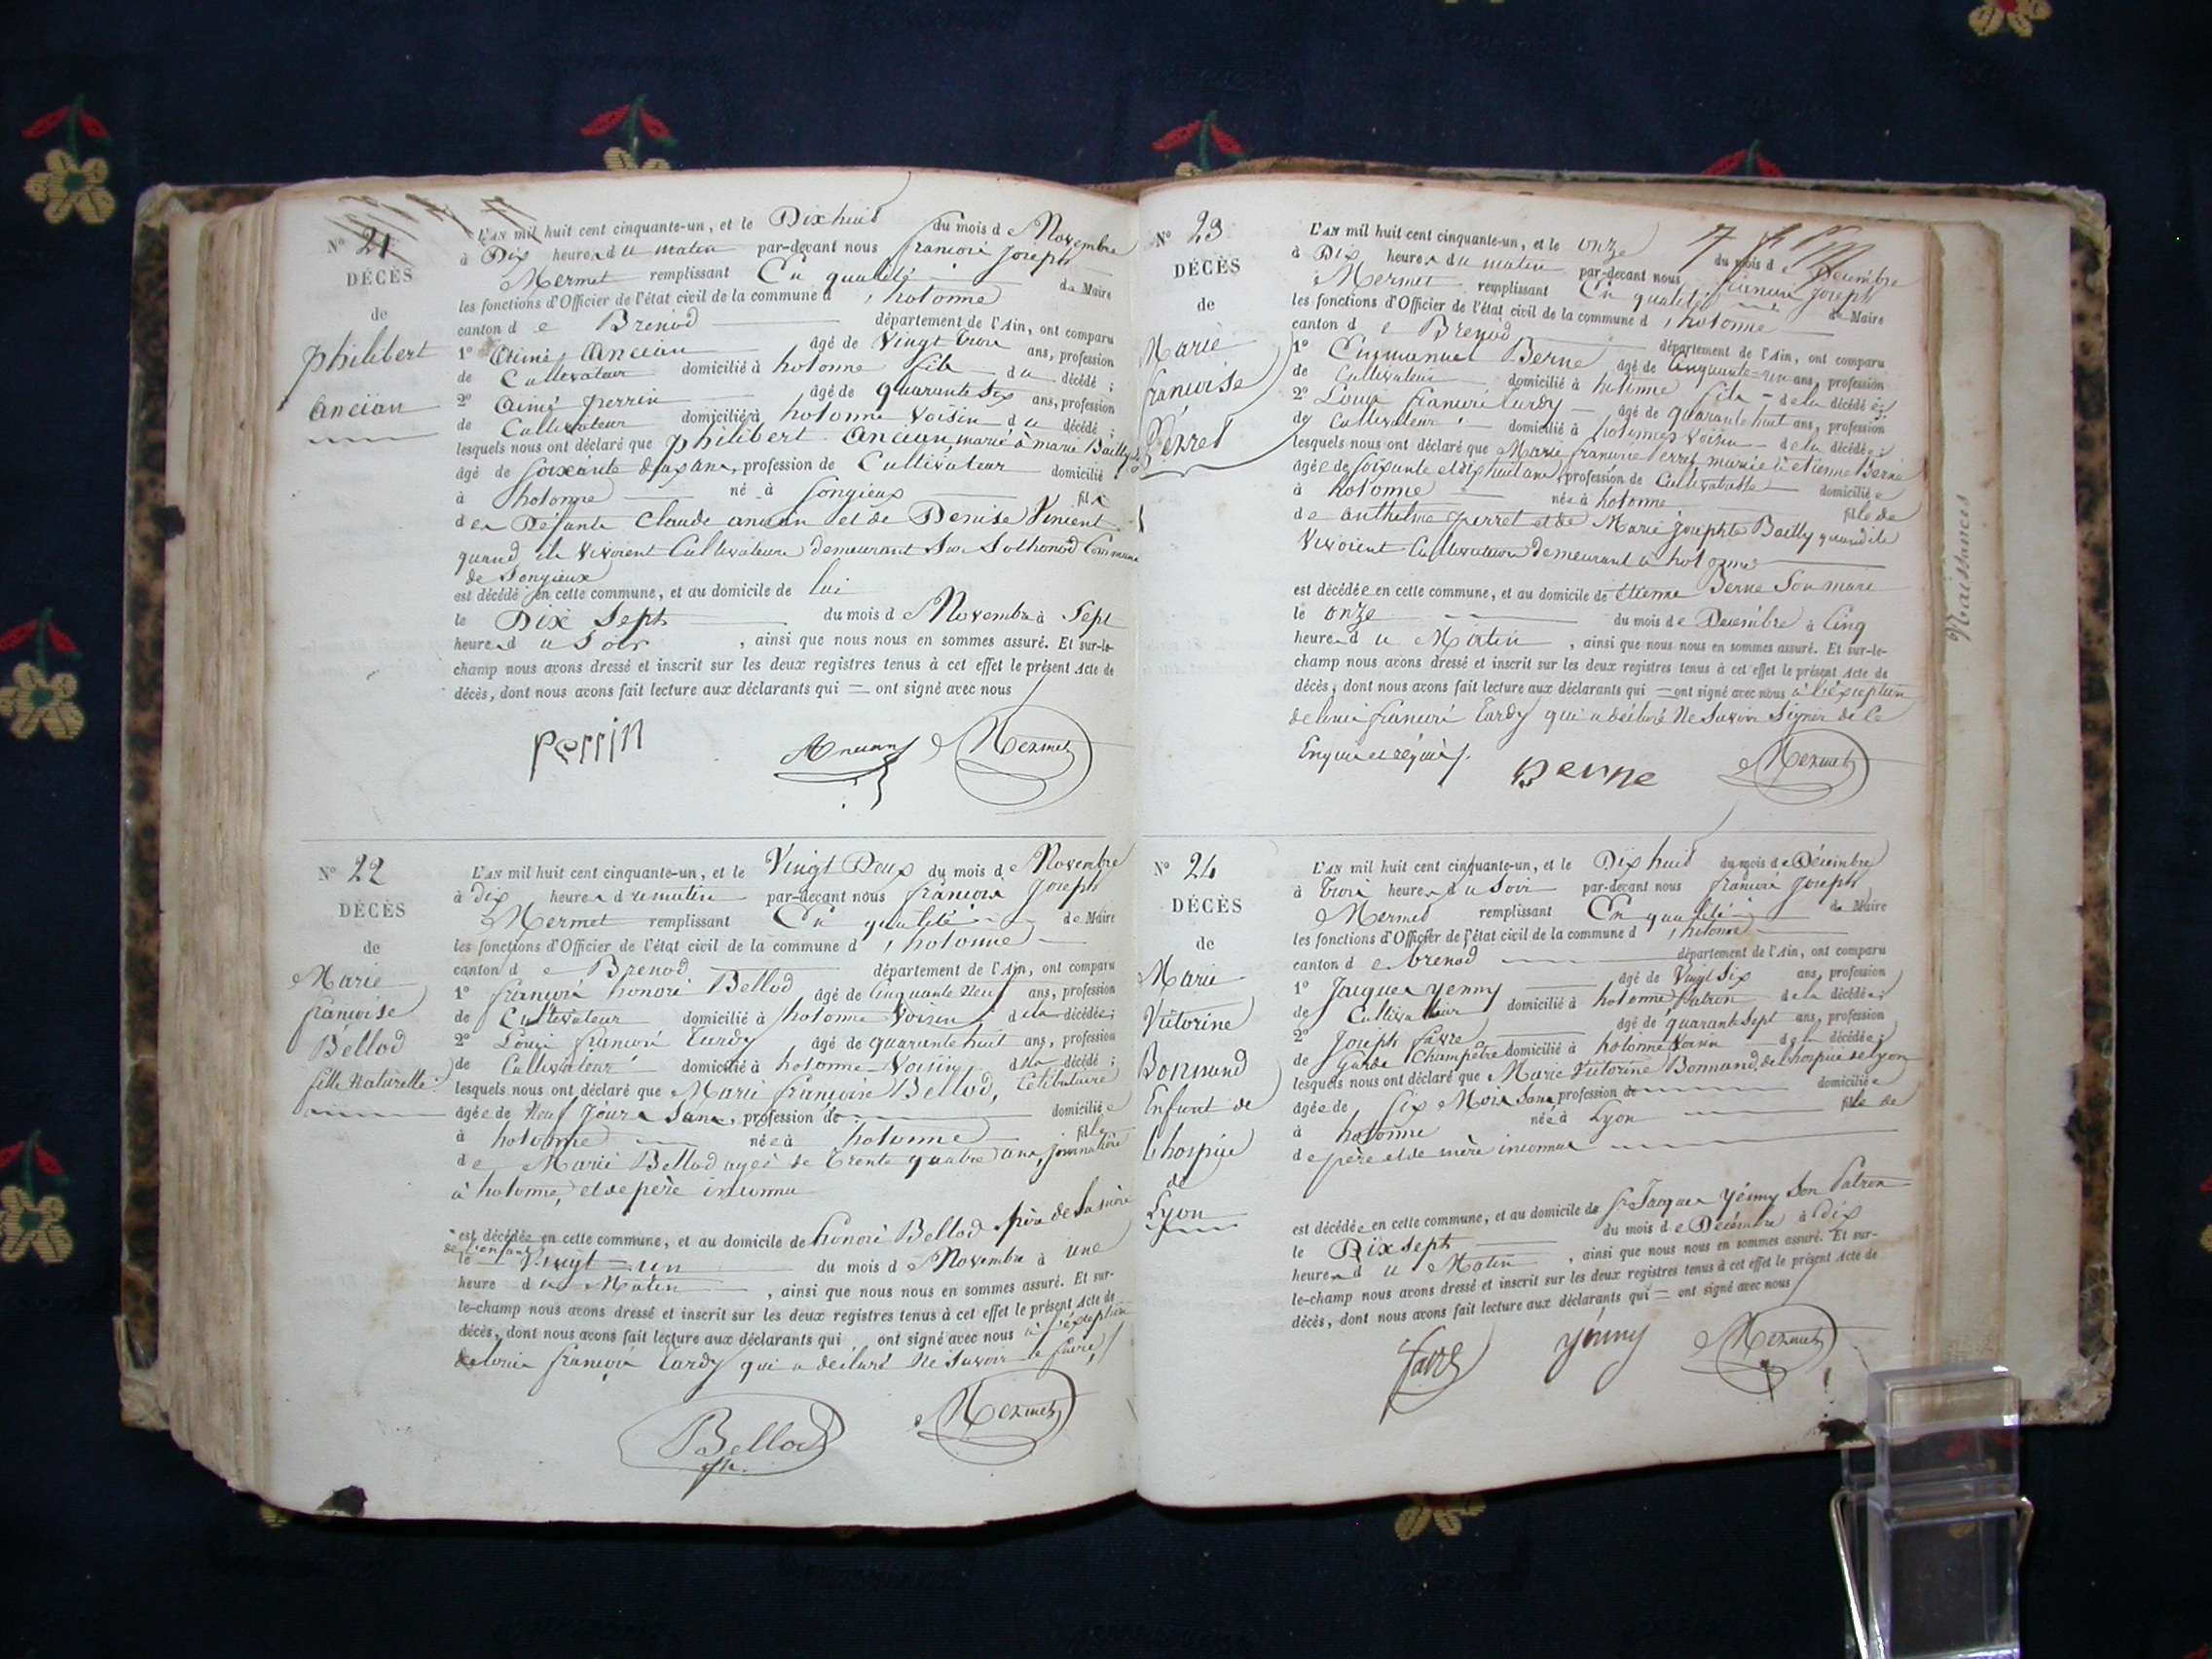 N° 21
DÉCÈS
de
Philibert
Ancian
L'AN mil huit cent cinquante-un, et le Dix huit du mois de Novembre
à Dix heures du matin par-devant nous francois Joseph
Mermet remplissant En qualité de Maire
les fonctions d'Officier de l'état civil de la commune d'hotonne
canton de Brenod département de l'Ain, ont comparu
1° Aimé Ancian âgé de Vingt trois ans, profession
de Cultivateur domicilié à hotonne fils du décédé ;
2° Aimé Perrin âgé de quarante six ans, profession
de Cultivateur domicilié à hotonne Voisin du décédé ;
lesquels nous ont déclaré que Philibert Ancian marié à marie Bailly
âgé de soixante dix ans, profession de Cultivateur domicilié
à hotonne né à Songieux fils
des Défunts Claude ancian et de Denise Vincent
quand ils Vivoient Cultivateurs demeurant Sur Sothonod Commune
de Songieux
est décédé en cette commune, et au domicile de lui
le Dix Sept du mois de Novembre à Sept
heures du Soir , ainsi que nous nous en sommes assuré. Et sur-le-
champ nous avons dressé et inscrit sur les deux registres tenus à cet effet le présent Acte de
décès, dont nous avons fait lecture aux déclarants qui = ont signé avec nous
Perrin Ancian Mermet
N° 22
DÉCÈS
de
Marie
francoise
Bellod
fille Naturelle
L'AN mil huit cent cinquante-un, et le Vingt Deux du mois de Novembre
à dix heures du matin par-devant nous francois Joseph
Mermet remplissant En qualité de Maire
les fonctions d'Officier de l'état civil de la commune d'hotonne
canton de Brenod département de l'Ain, ont comparu
1° françois honoré Bellod âgé de Cinquante Neuf ans, profession
de Cultivateur domicilié à hotonne Voisin de la décédée ;
2° Louis francois Tardy âgé de quarante huit ans, profession
de Cultivateur domicilié à hotonne Voisin de la décédé ;
lesquels nous ont déclaré que Marie françoise Bellod, Célibataire
âgée de Neuf Jours Sans, profession de domiciliée
à hotonne née à hotonne fille
de Marie Bellod agée de Trente quatre ans, journalière
à hotonne, et de père inconnu
est décédée en cette commune, et au domicile de honoré Bellod père de la mère
de l'enfant
le Vingt = un du mois de Novembre à une
heure du Matin , ainsi que nous nous en sommes assuré. Et sur-
le-champ nous avons dressé et inscrit sur les deux registres tenus à cet effet le présent Acte de
décès, dont nous avons fait lecture aux déclarants qui ont signé avec nous à l'éxception
de Louis francois Tardy qui a déclaré Ne Savoir le faire
Bellod Mermet
N° 23
DÉCÈS
de
Marie
francoise
Perret
L'AN mil huit cent cinquante-un, et le onze du mois de Décembre
à Dix heures du matin par-devant nous francois Joseph
Mermet remplissant En qualité de Maire
les fonctions d'Officier de l'état civil de la commune d'hotonne
canton de Brenod département de l'Ain, ont comparu
1° Emmanuel Berne âgé de Cinquante = un ans, profession
de Cultivateur domicilié à hotonne fils de la décédée ;
2° Louis francois Tardy âgé de quarante huit ans, profession
de Cultivateur domicilié à hotonne Voisin de la décédée ;
lesquels nous ont déclaré que Marie francoise Perret mariée à etienne Berne
âgée de soixante et dix huit ans, profession de Cultivatrice domiciliée
à hotonne née à hotonne fille de
de anthelme perret et de Marie Josephte Bailly quand ils
Vivoient Cultivateurs demeurant à hotonne
est décédée en cette commune, et au domicile de Etienne Berne Son mari
le onze du mois de Décembre à Cinq
heures du Matin , ainsi que nous nous en sommes assuré. Et sur-le-
champ nous avons dressé et inscrit sur les deux registres tenus à cet effet le présent Acte de
décès, dont nous avons fait lecture aux déclarants qui = ont signé avec nous à l'éxception
de Louis francois Tardy qui a déclaré Ne Savoir Signer de ce
Enquis et réquis
Berne Mermet
N° 24
DÉCÈS
de
Marie
Victorine
Bonnand
Enfant de
L'hospice
de
Lyon
L'AN mil huit cent cinquante-un, et le Dix huit du mois de Décembre
à trois heures du Soir par-devant nous francois Joseph
Mermet remplissant En qualité de Maire
les fonctions d'Officier de l'état civil de la commune d'hotonne
canton de brenod département de l'Ain, ont comparu
1° Jacques yenny âgé de Vingt Six ans, profession
de Cultivateur domicilié à hotonne Patron de la décédée ;
2° Joseph favre âgé de quarante sept ans, profession
de Garde Champêtre domicilié à hotonne Voisin de la décédée ;
lesquels nous ont déclaré que Marie Victorine Bonnand, de L'hospice de Lyon
âgée de Six Mois Sans profession de domiciliée
à hotonne née à Lyon fille de
de père et de mère inconnus
est décédée en cette commune, et au domicile de Sr Jacques yénny Son Patron
le Dix sept du mois de Décembre à dix
heures du Matin , ainsi que nous nous en sommes assuré. Et sur-
le-champ nous avons dressé et inscrit sur les deux registres tenus à cet effet le présent Acte de
décès, dont nous avons fait lecture aux déclarants qui = ont signé avec nous
favre yénny Mermet
Naissances